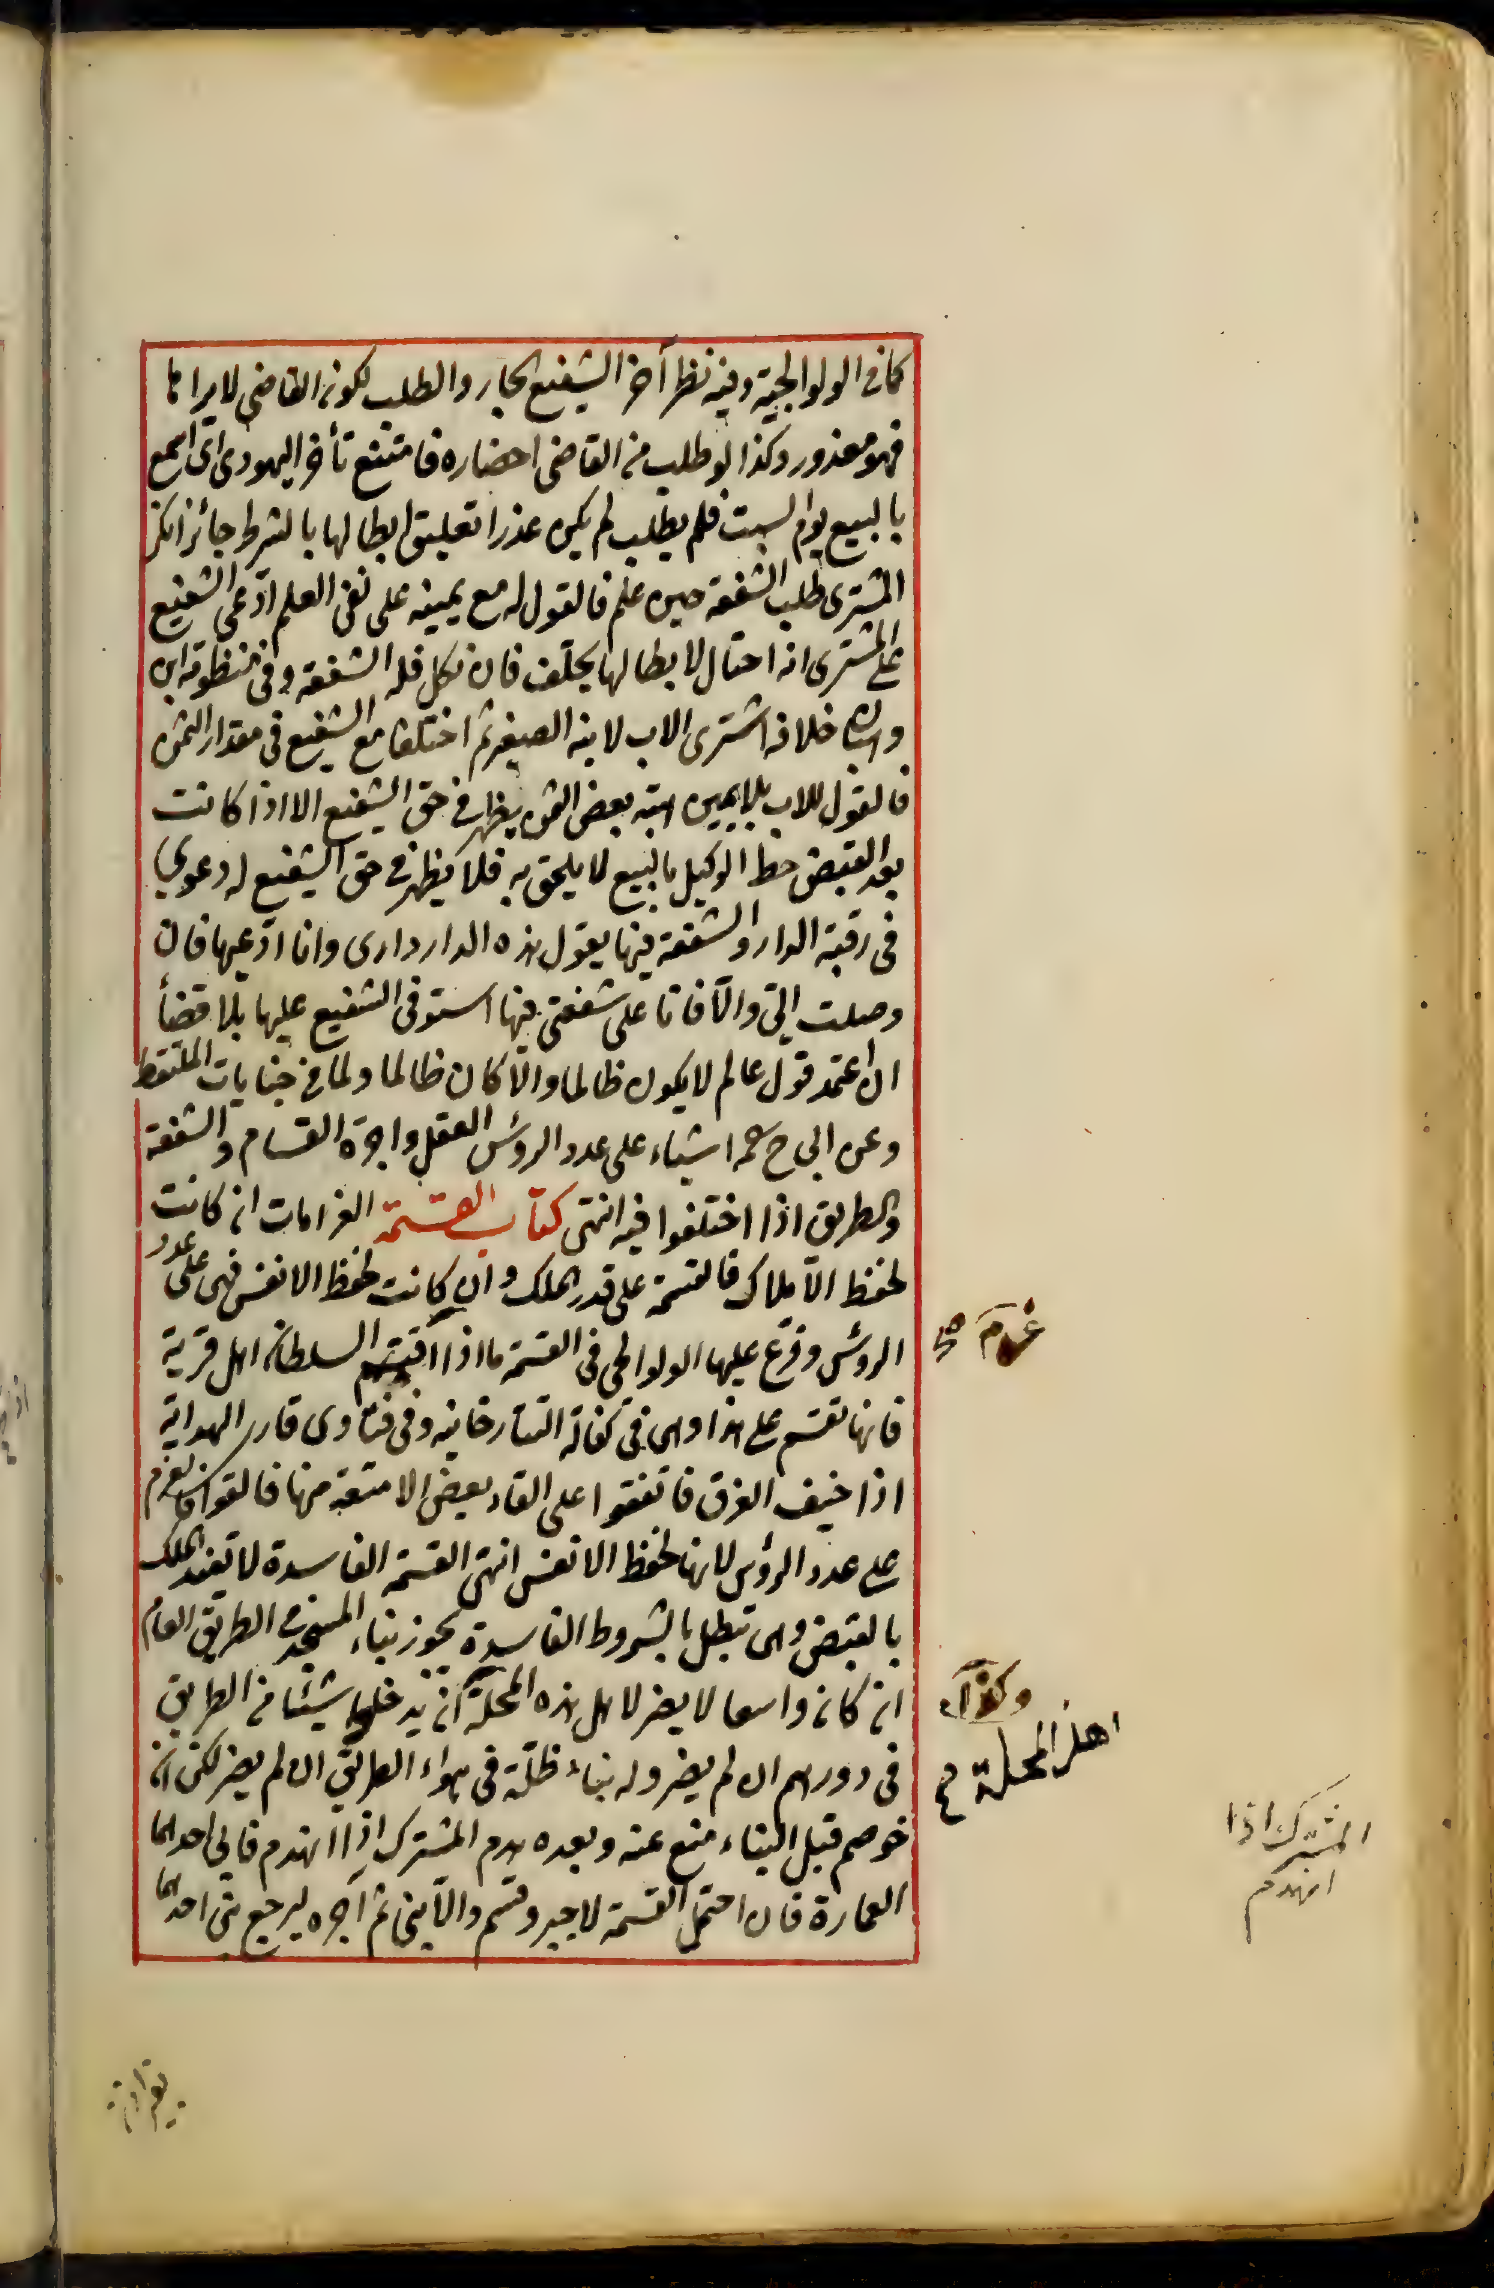 كما في الولوالجية وفيه نظر آخر الشفيع الجار والطلب لكون القاضي لا يراها
فهو معذور وكذا لو طلب من القاضي احضاره فامتنع تأخر اليهودى اى سمع
بالبيع يوم السبت فلم يطلب لم يكن عذرا تعليق ابطالها بالشرط جائز انكر
المشترى طلب الشفعة حين علم فالقول له مع يمينه على نفى العلم ادّعى الشفيع
على المشترى انه احتال لابطالها يحلف فان نكل فله الشفعة وفى منظومة ابن
وهبان خلافه اشترى الاب لابنه الصغير ثم اختلفا مع الشفيع فى مقدار الثمن
فالقول للاب بلا يمين هبة بعض الثمن يظهر فى حق الشفيع الا اذا كانت
بعد القبض حط الوكيل بالبيع لا يلحق به فلا يظهر فى حق الشفيع له دعوي
فى رقبة الدار والشفعة فيها يقول هذه الدار دارى وانا ادّعيها فان
وصلت اليّ والّا فانا على شفعتى فيها استوفى الشفيع عليها بلا قضأ
ان اعتمد قول عالم لا يكون ظالما والّا كان ظالما ولما فى جنايات الملتقط
وعن ابى ح رحمه اشياء على عدد الرؤس العقل واجرة القسام والشفعة
والطريق اذا اختلفوا فيه انتهى كتاب القسمة الغرامات ان كانت
لحفظ الاملاك فالقسمة على قدر الملك وان كانت لحفظ الانفس فهى على عدد
الرؤس وفرّع عليها الولوالجى فى القسمة ما اذا السلطان اهل قرية
فانها تقسم على هذا وهى فى كفالة التتارخانيه وفى فتاوى قارى الهداية
اذا خيف الغرق فاتفقوا على القاء بعض الامتعة منها فالقوا فالغرم
على عدد الرؤس لانها لحفظ الانفس انتهى القسمة الفاسدة لا تفيد الملك
بالقبض وهى تبطل بالشروط الفاسدة يجوز بناء المسجد فى الطريق العام
ان كان واسعا لا يضر لاهل هذه المحلة ان يدخلوا شيئا من الطريق
فى دورهم ان لم يضر وله بناء ظلّة فى هواء الطريق ان لم يضر لكن ان
خوصم قبل البناء منع عنه وبعده هدم المشترك اذا انهدم فابى احدهما
العمارة فان احتمل القسمة لا جبر وقسم والّا بنى ثم آجره ليرجع بنى احدهما
غرّم صح
وكذا
اهل المحلة
المشترك اذا
انهدم